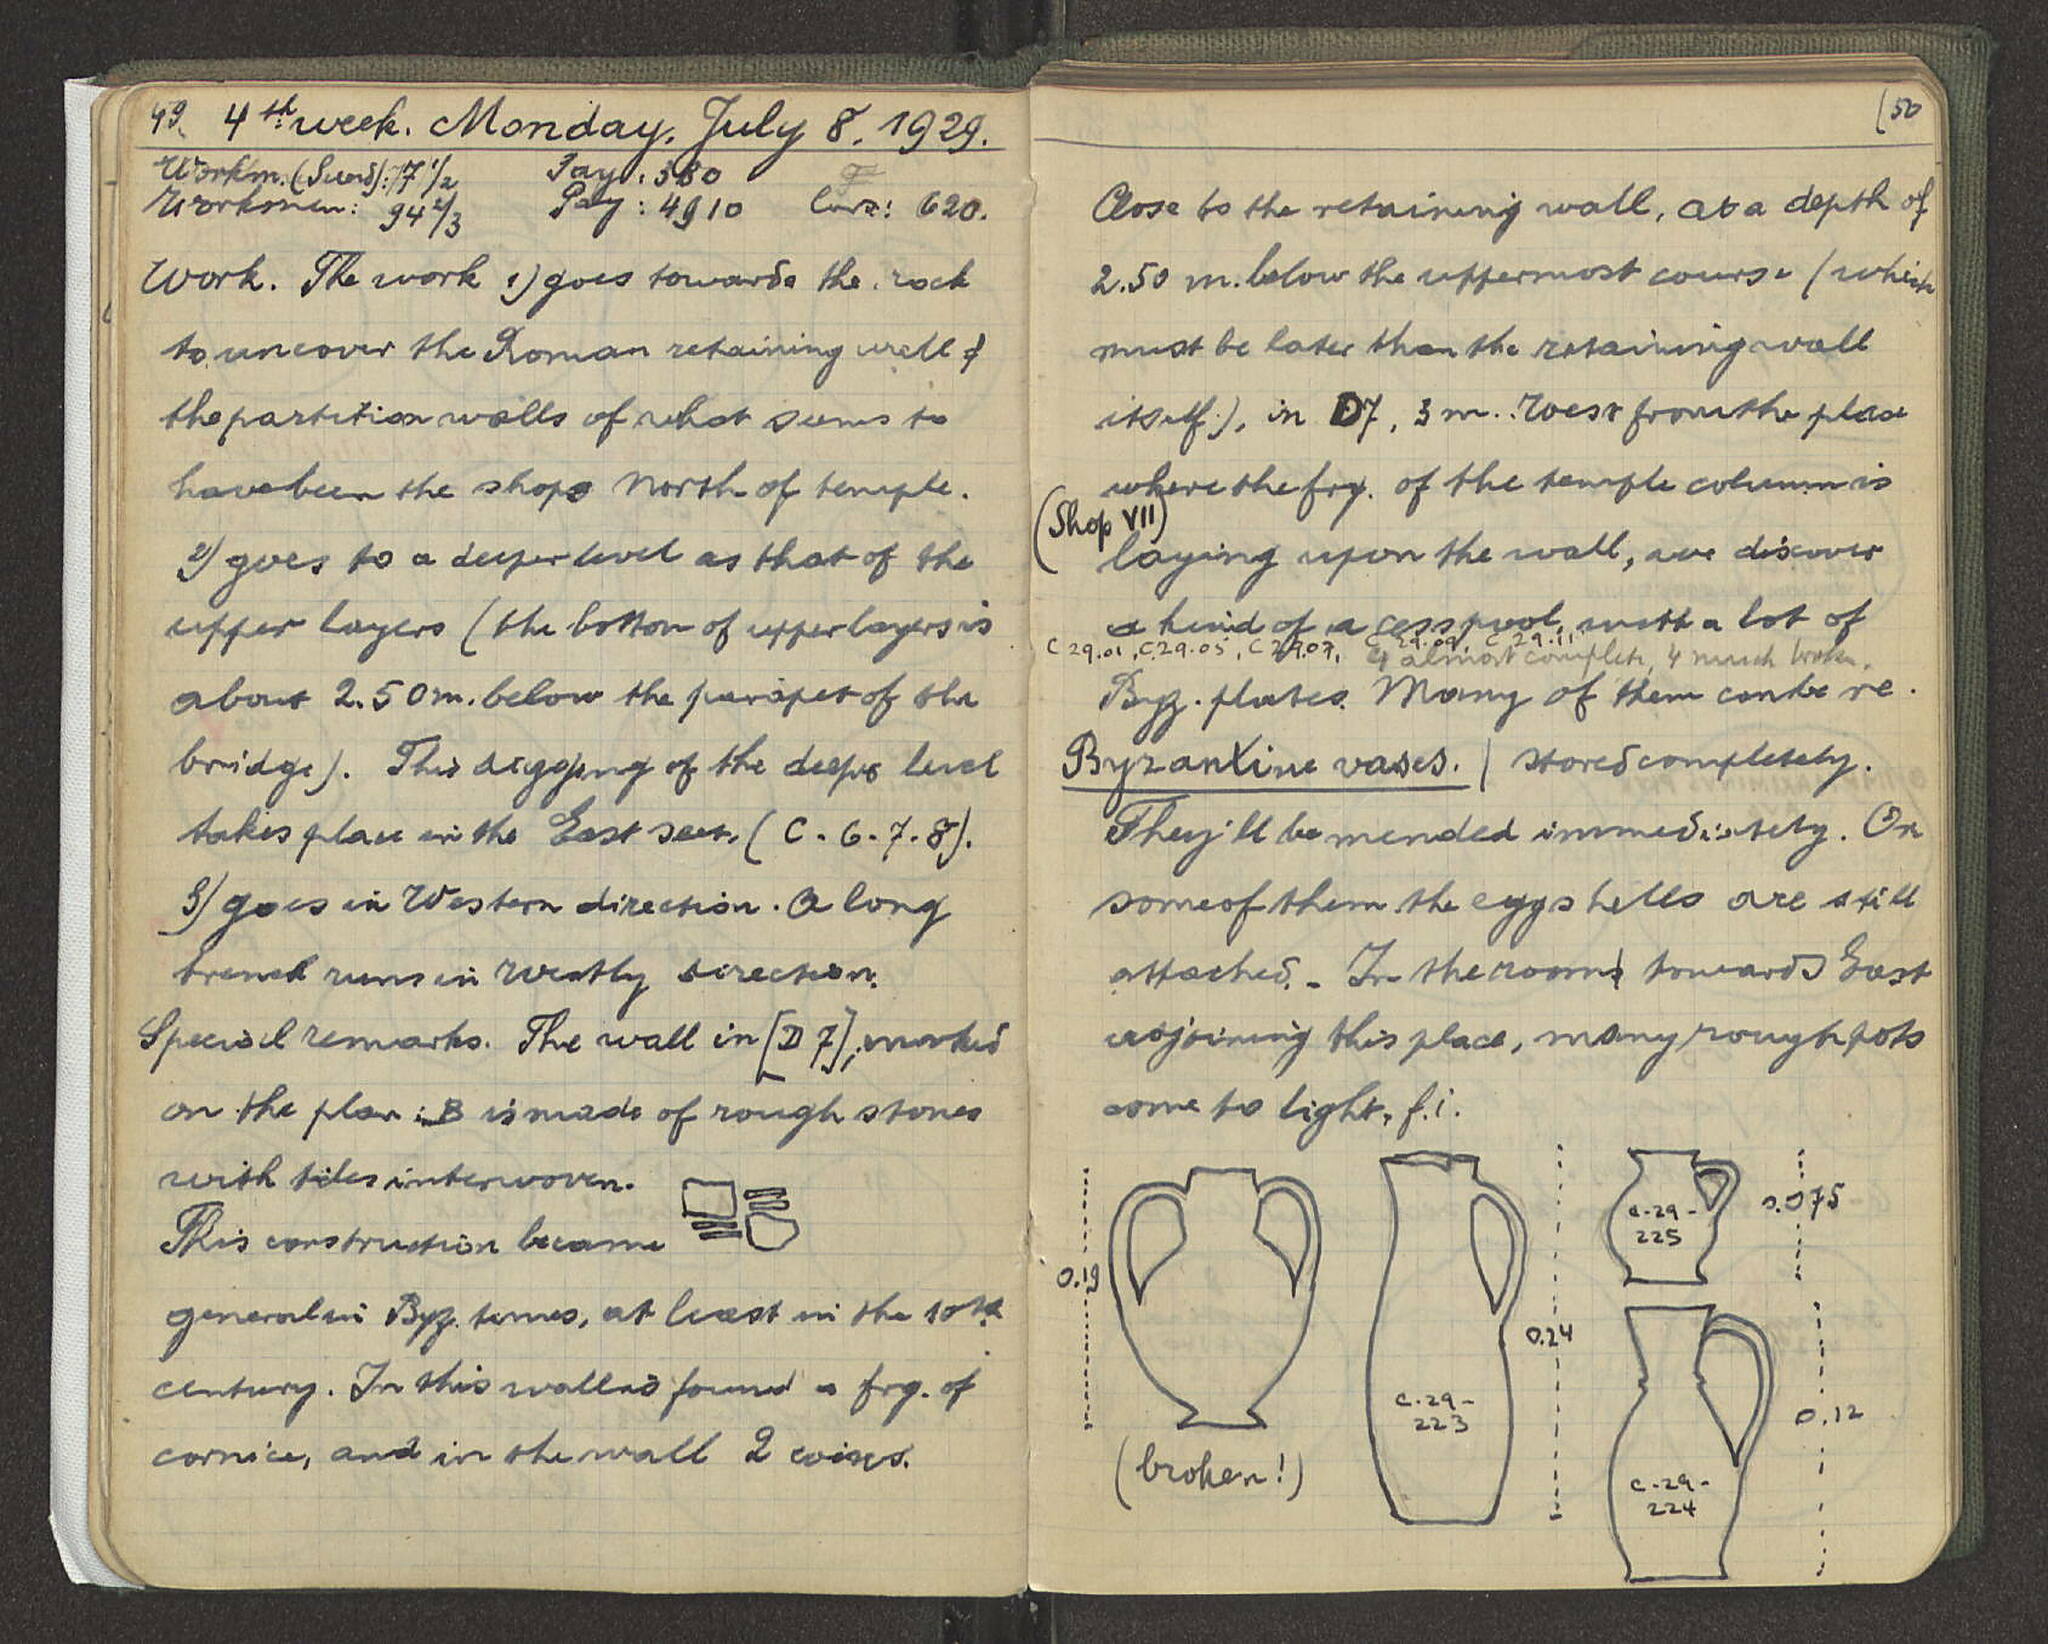 49. 4th week. Monday, July 8, 1929.
Workm. (Sund): 7 1/2 Pay: 380
Workmen: 94 2/3 Pay: 4910 Cars: 620.
Work. The work 1) goes towards the rock
to uncover the Roman retaining wall &
the partition walls of what seems to
have been the shops North of temple.
2) goes to a deeper level as that of the
upper layers (the bottom of upper layers is
about 2.50 m. below the parapet of the
bridge). This digging of the deeper level
takes place in the East sect. (C-6-7-8).
3) goes in Western direction. A long
trench runs in Westly direction.
Special remarks. The wall in [D 7], marked
on the plan: B is made of rough stones
with tiles interwoven.
This construction became
general in Byz. times, at least in the 10th
century. In this wall is found a frg. of
cornice, and in the wall 2 coins.
50
Close to the retaining wall, at a depth of
2.50 m. below the uppermost course (which
must be later than the retaining wall
itself), in D7, 3 m. West from the place
where the frg. of the temple column is
(Shop VII)
laying upon the wall, we discover
a kind of a cesspool, with a lot of
C 29.01, C 29.05, C 29.07, C 29.09, C 29.11 4 almost complete, 4 much broken.
Byz. plates. Many of them can be re-
Byzantine vases. | stored completely.
They'll be mended immediately. On
some of them the eggshells are still
attached. - In the room towards East
adjoining this place, many rough pots
come to light, f.i.
0.19
(broken!)
C-29-
223
0.24
C-29-
225
0.075
C-29-
224
0.12